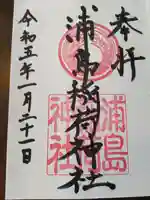 奉拝
浦島稲荷神社
浦島
神社
令和五年一月二十一日